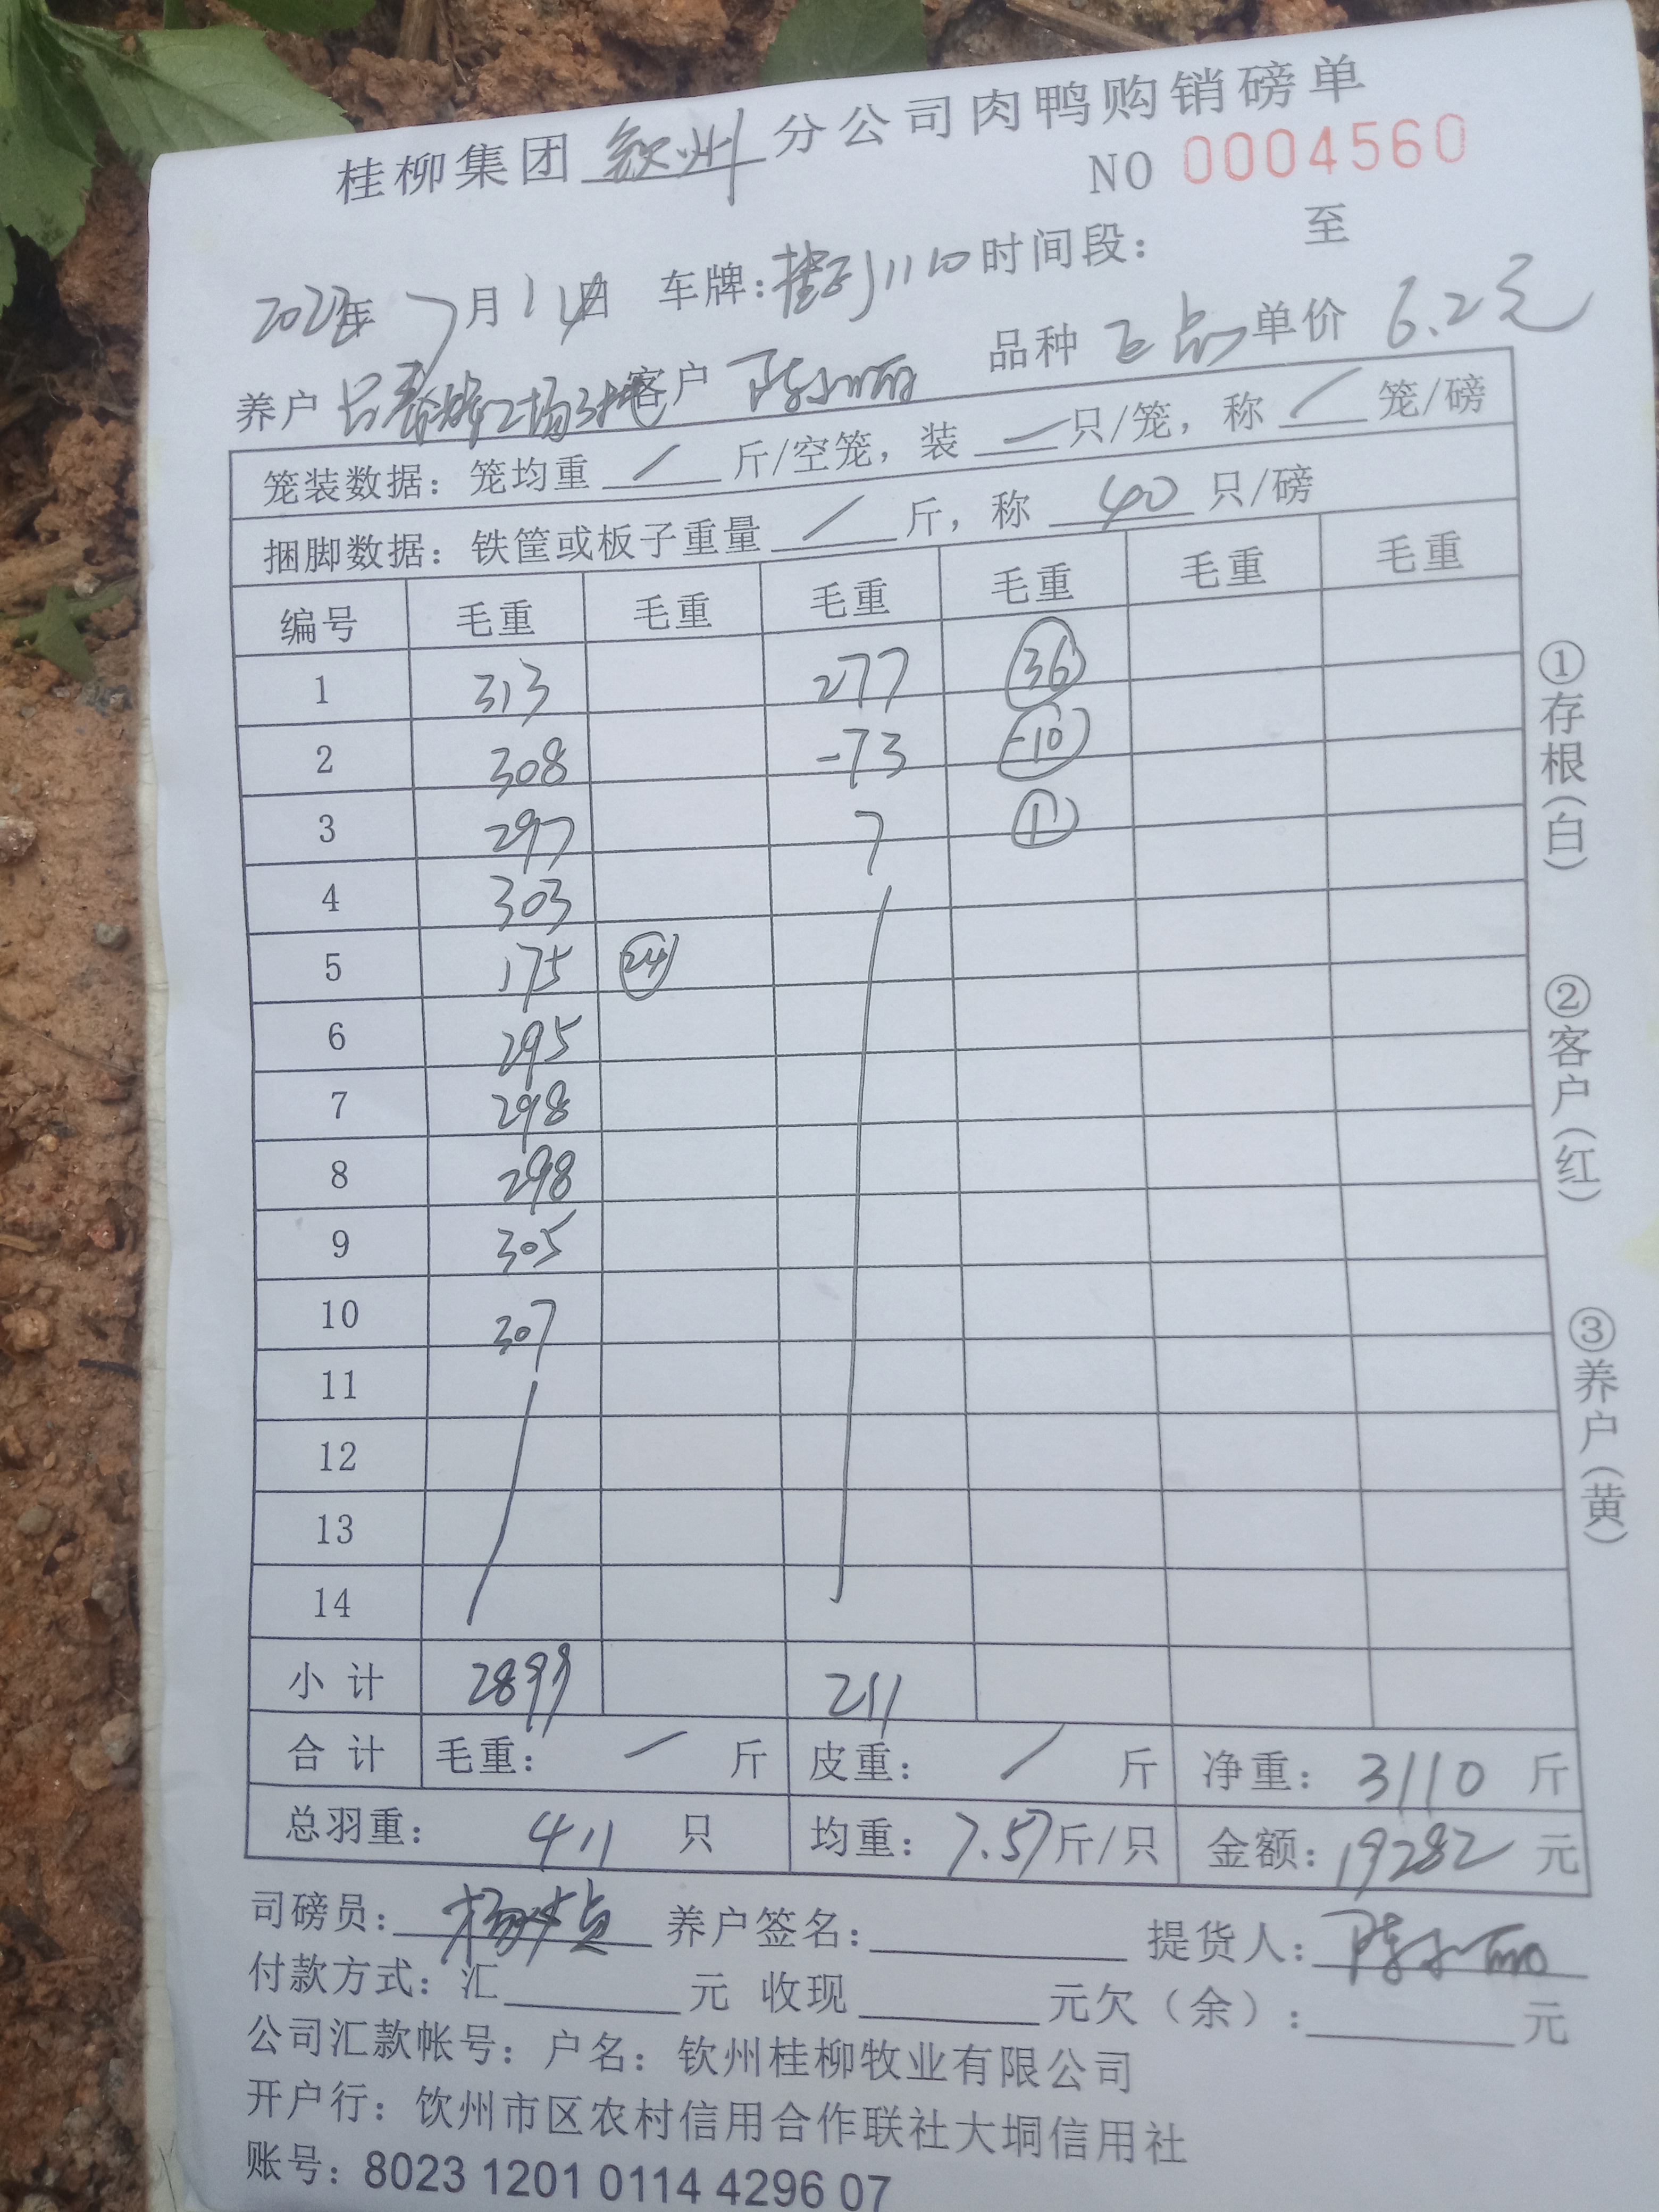 桂柳集团 钦州 分公司肉鸭购销磅单
NO 0004560
2022年 7月 14日 车牌: 1110 时间段: 至
养户 客户 陈小丽 品种 正品 单价 6.2元
笼装数据: 笼均重 / 斤/空笼, 装 / 只/笼, 称 / 笼/磅
捆脚数据: 铁筐或板子重量 / 斤, 称 40 只/磅
编号 毛重 毛重 毛重 毛重 毛重 毛重
1 313 277 36
2 308 -73 -10
3 297 7 1
4 303
5 175 24
6 295
7 298
8 298
9 305
10 307
11
12
13
14
小计 2899 211
合计 毛重: / 斤 皮重: / 斤 净重: 3110 斤
总羽重: 411 只 均重: 7.57斤/只 金额: 19282 元
司磅员: 养户签名: 提货人: 陈小丽
付款方式: 汇 元 收现 元欠(余): 元
公司汇款帐号: 户名: 钦州桂柳牧业有限公司
开户行: 钦州市区农村信用合作联社大垌信用社
账号: 8023 1201 0114 4296 07
①存根(白)
②客户(红)
③养户(黄)